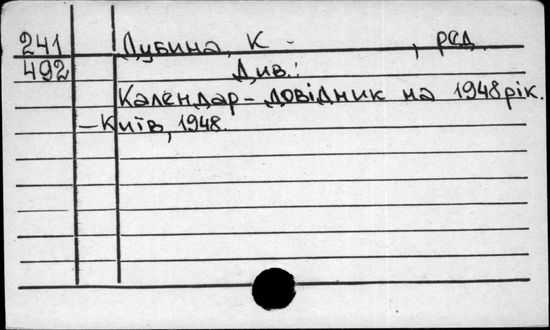 241 Дубина, К. , ред.
492 Див.:
Календар-довідник на 1948 рік.
–Київ, 1948.